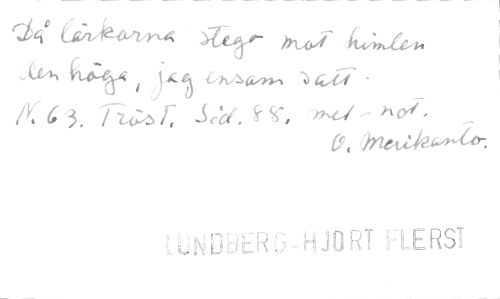 Då lärkorna stego mot himlen
den höga, jag ensam satt.
N. 63. Tröst. Sid. 88. met-not.
O. Merikanto.
LUNDBERG-HJORT FLERST